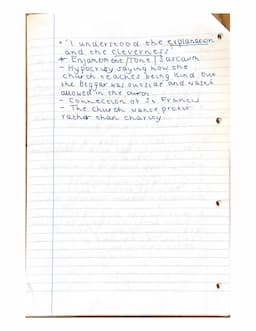 • "I understood the explanation
and the cleverness"
* Enjambment / Tone / Sarcasm
- Hypocrisy saying how the
church teaches being kind but
the beggar was outside and wasn't
allowed in the
- Connection of St Francis
- The church wants profit
rather than charity